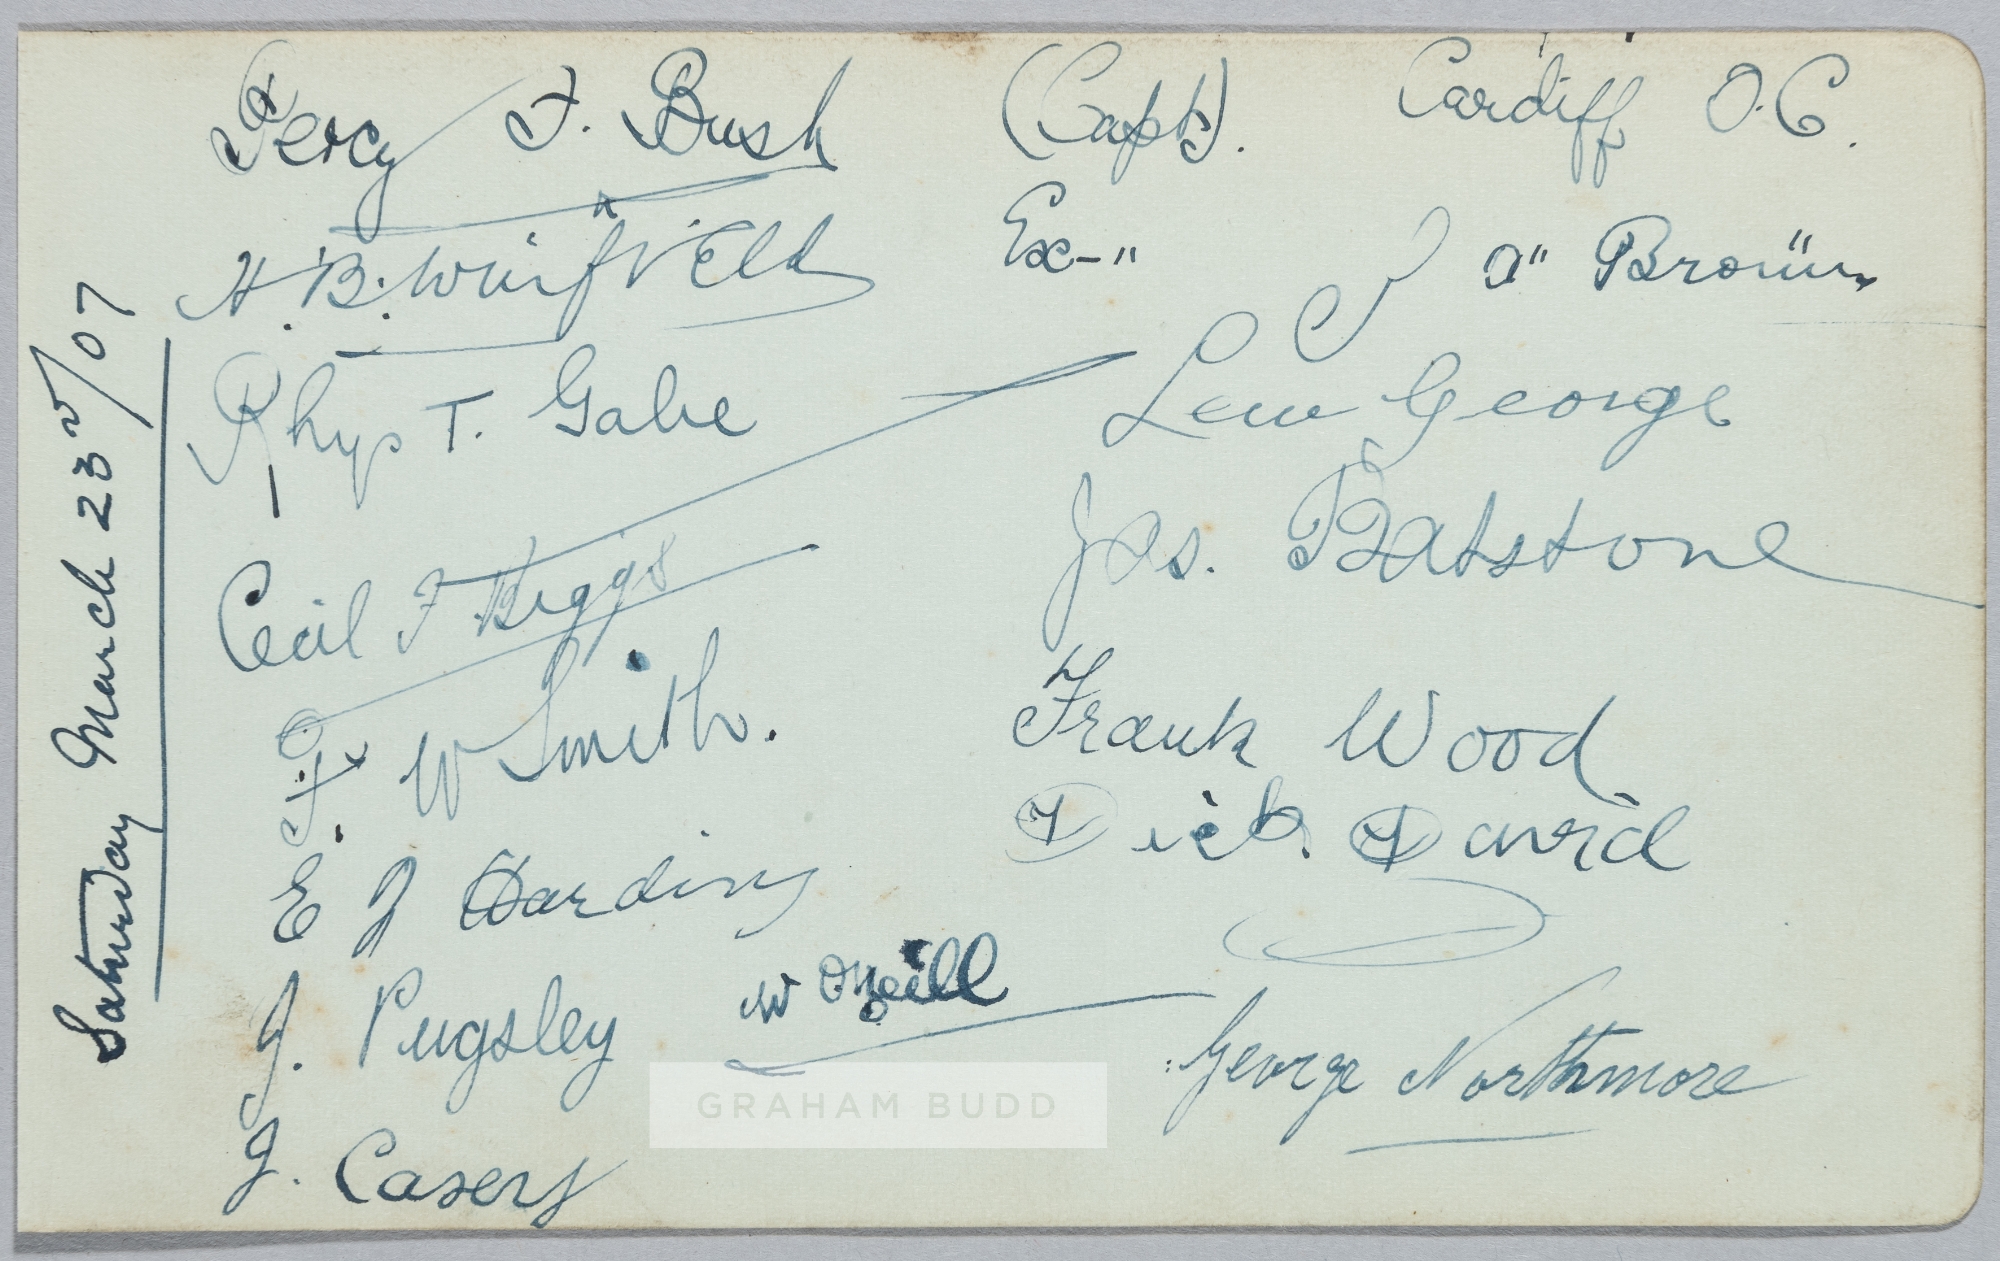 Saturday March 23rd/07
Percy F. Bush (Capt). Cardiff O.C.
H. B. Winfield Ex-"
J A Brown
Rhys T. Gabe
Lew George
Cecil F Biggs
Jas. Batstone
F W Smith.
Frank Wood
E J Harding
Dick. David
J. Pugsley
W O'Neill
George Northmore
J. Casey
GRAHAM BUDD